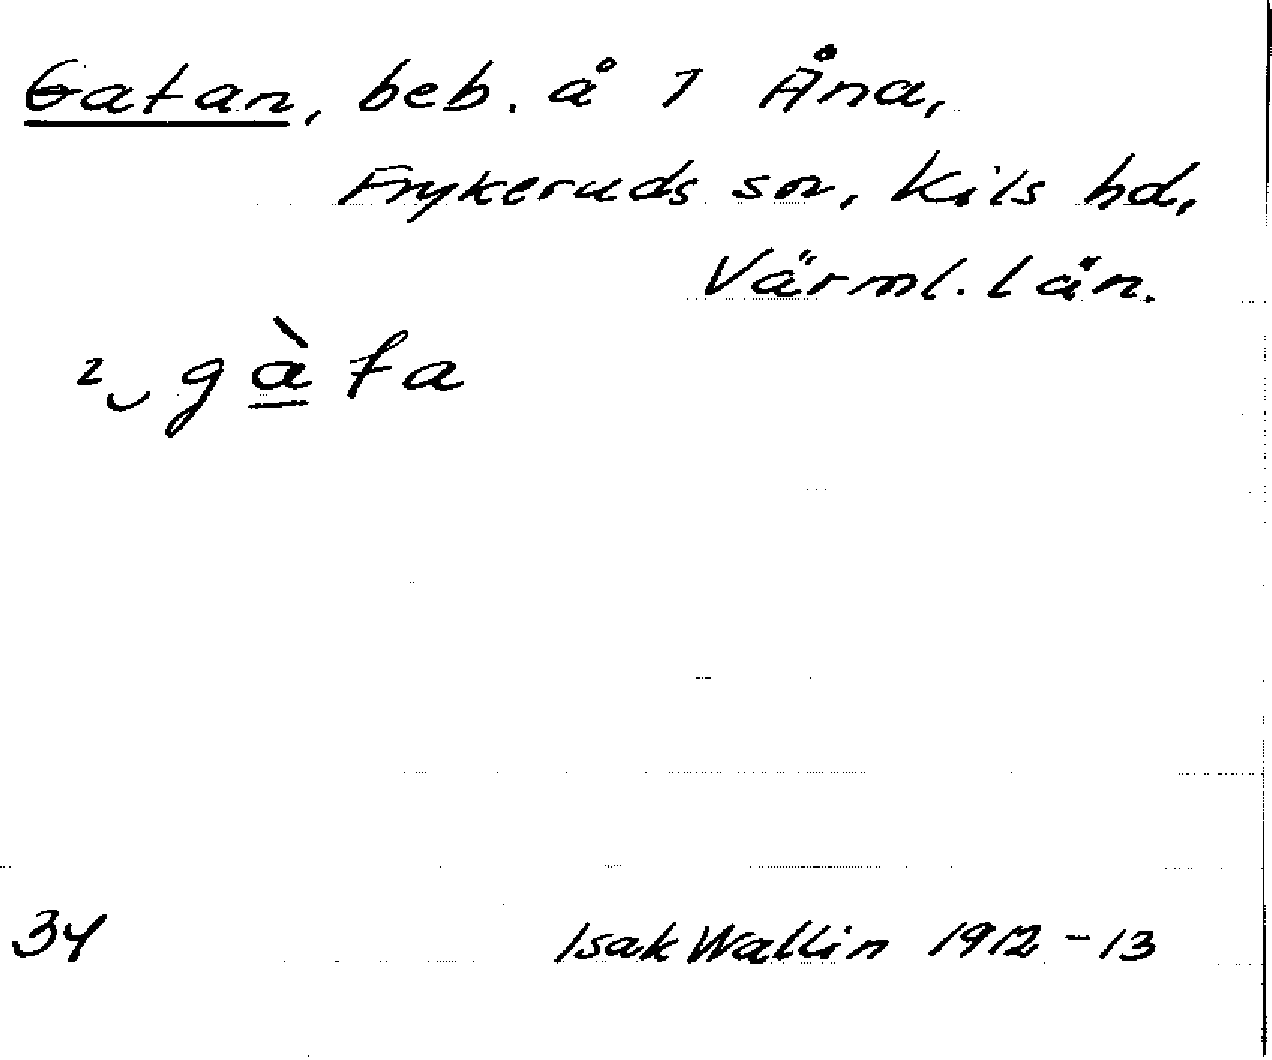 Gatan, beb. å 1 Åna,
Frykeruds sn, Kils hd,
Värml. län.
2 ̮ gàta
34 Isak Wallin 1912-13